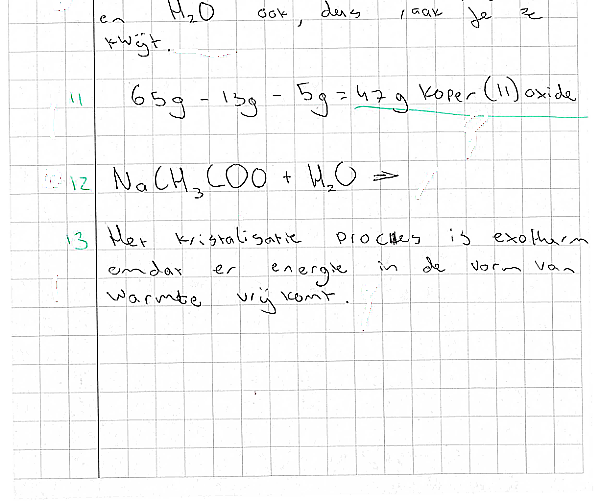 en H₂O ook, dus raak je ze
kwijt.
11 65g - 13g - 5g = 47 g koper (II) oxide
12 NaCH₃COO + H₂O ⇒
13 Het kristalisatie proces is exotherm
omdat er energie in de vorm van
warmte vrij komt.